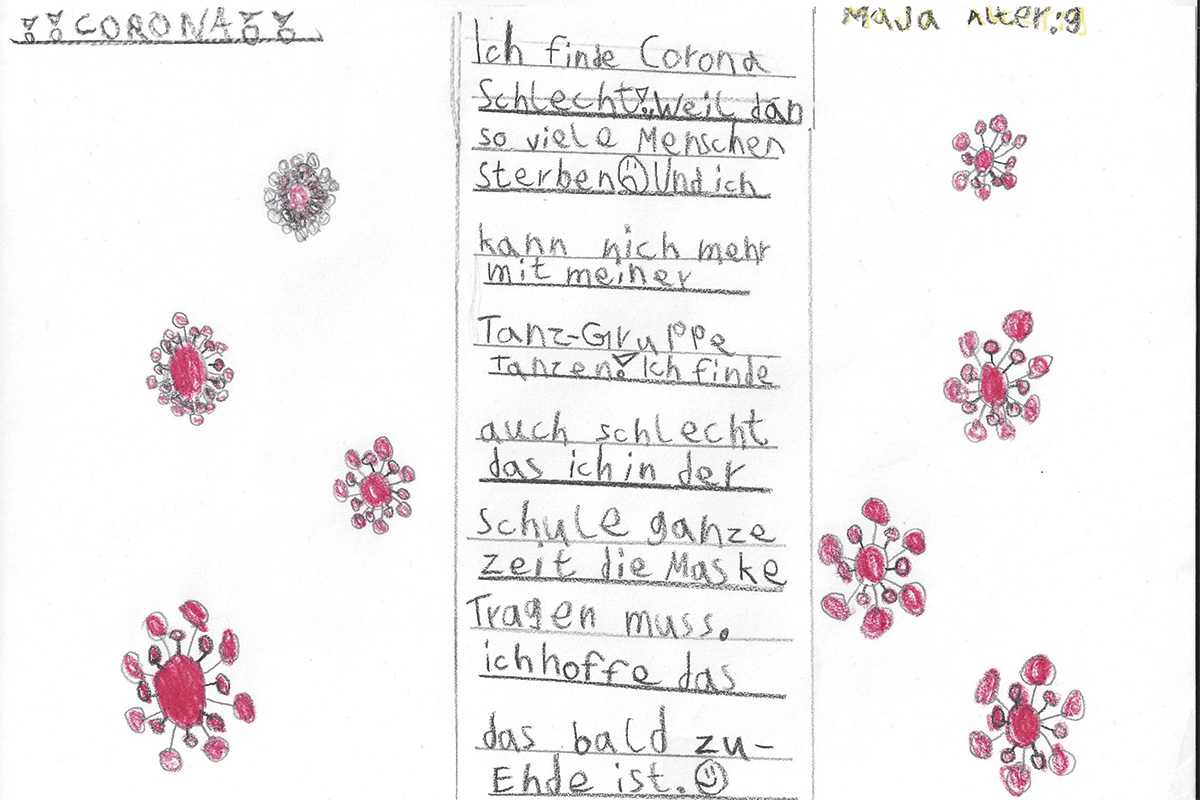 !!CORONA!!
Maja Alter:9
Ich finde Corona
Schlecht!Weil dan
so viele Menschen
Sterben☹Und ich
kann nich mehr
mit meiner
Tanz-Gruppe
tanzen! Ich finde
auch schlecht
das ich in der
schule ganze
zeit die Maske
Tragen muss.
ich hoffe das
das bald zu-
Ende ist.☺